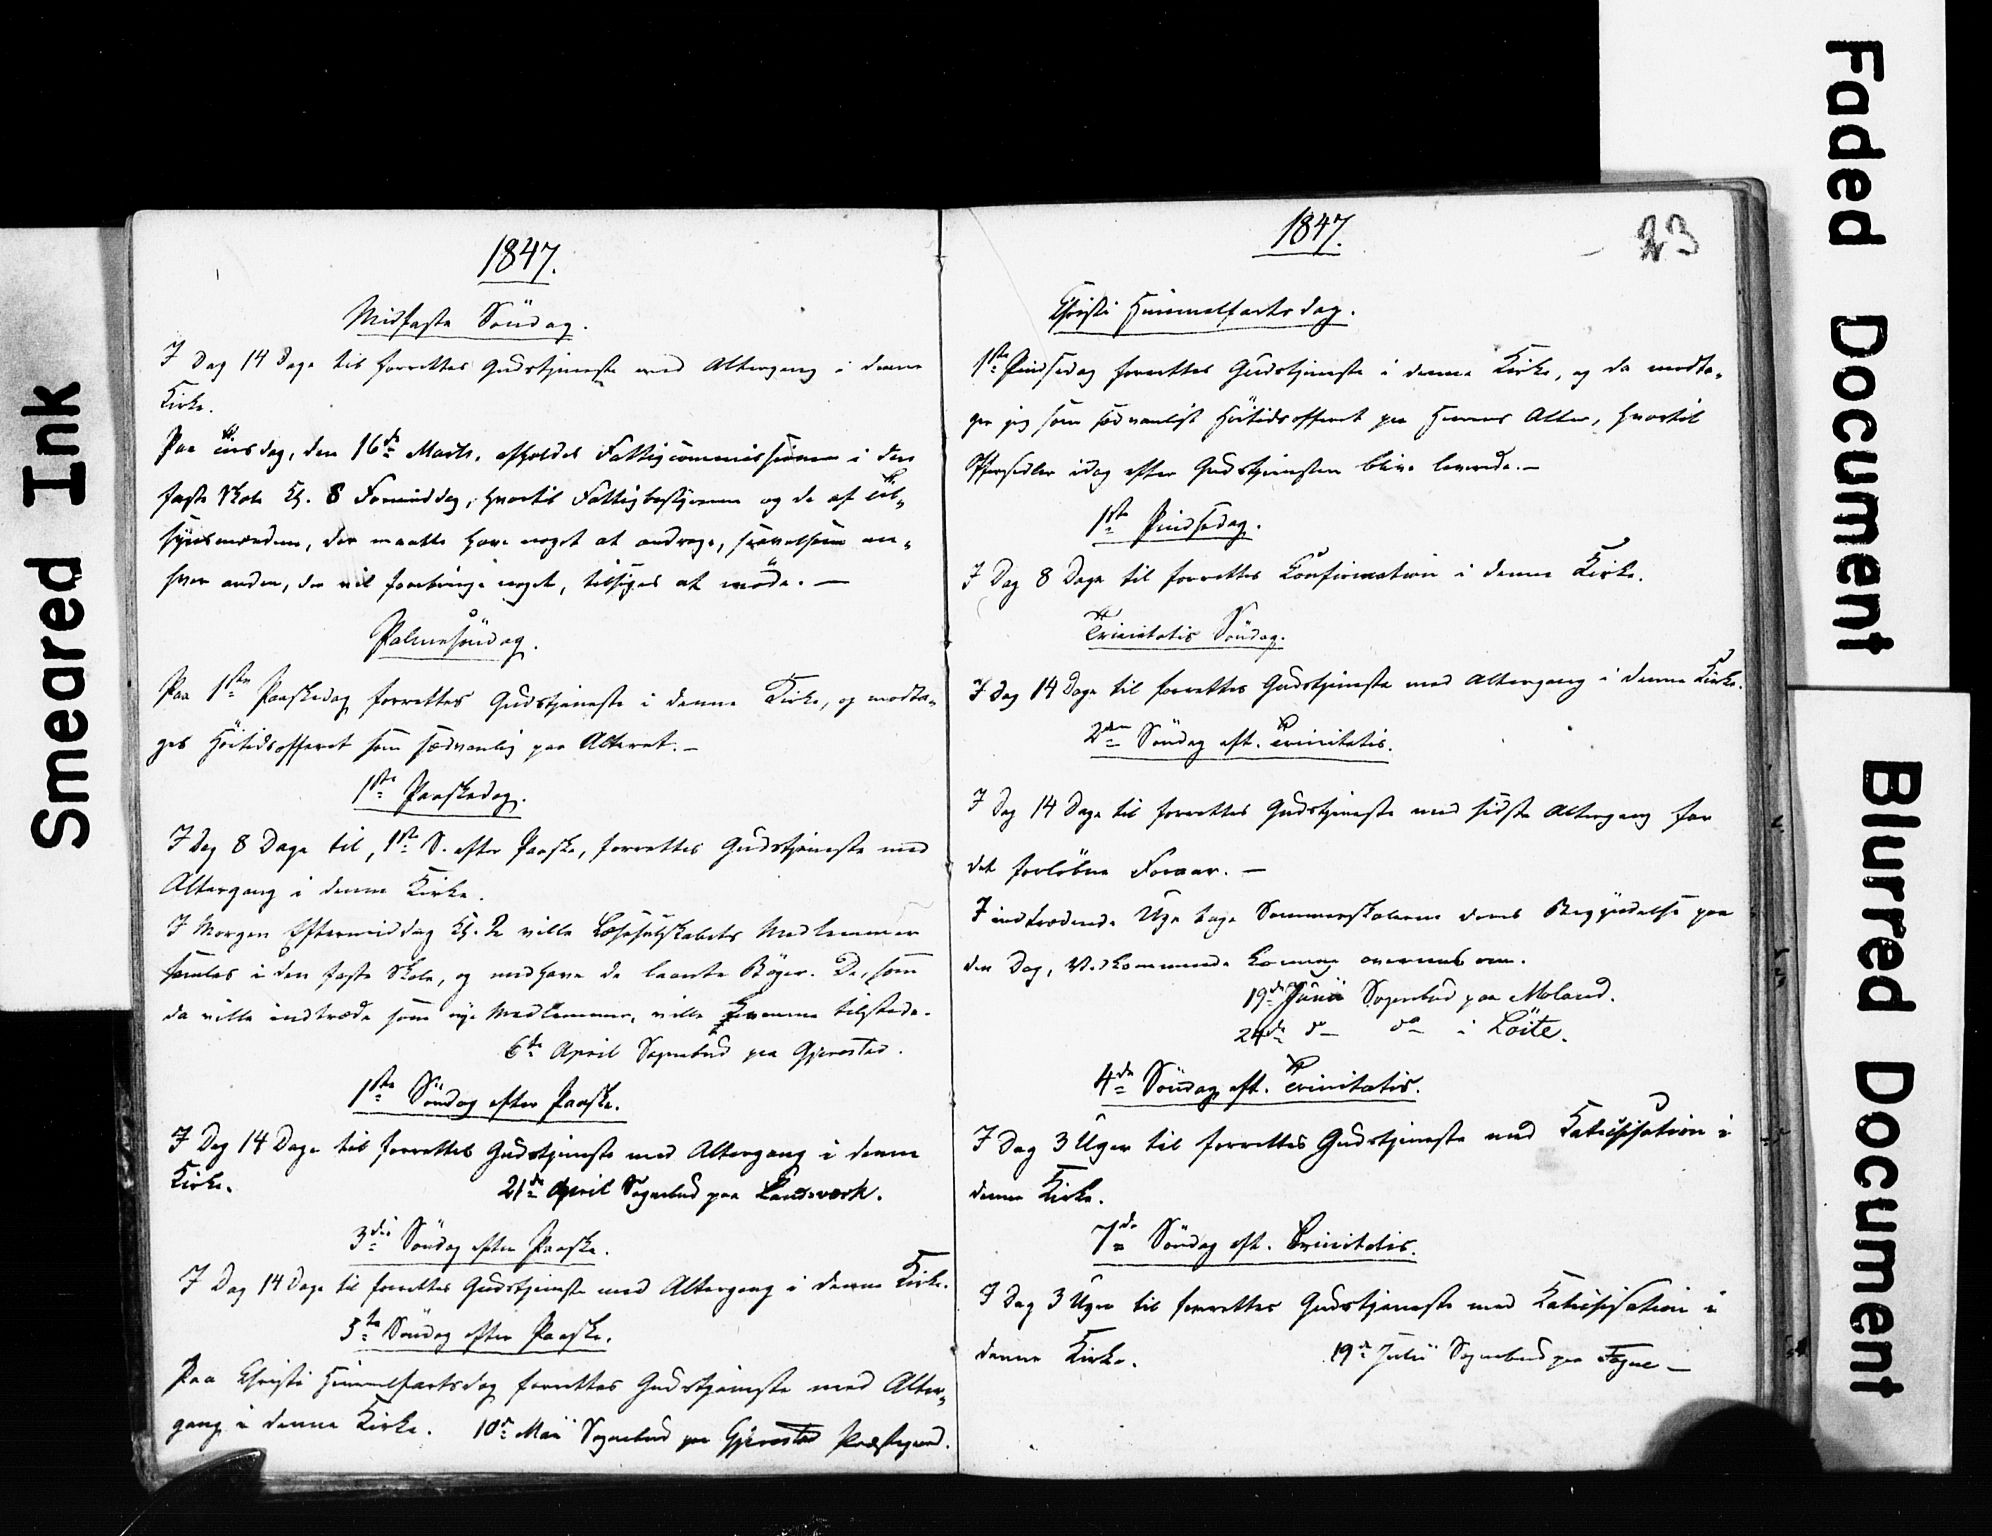 Smeared Ink
1847.
Midfaste Söndag.
I Dag 14 Dage til forrettes Gudstjeneste med Altergang i denne
Kirke.
Paa Tirsdag, den 16de Marts, afholdes Fattigcommissionen i den
faste Skole Kl. 8 Formiddag, hvortil Fattigbestyrerne og de af Til-
synsmændene, der maatte have noget at andrage, saavelsom en-
hver anden, der vil frembringe noget, tilsiges at möde. —
Palmesöndag.
Paa 1ste Paaskedag forrettes Gudstjeneste i denne Kirke, og modta-
ges Höitidsofferet som sædvanlig paa Alteret. —
1ste Paaskedag.
I Dag 8 Dage til, 1ste S. efter Paaske, forrettes Gudstjeneste med
Altergang i denne Kirke.
I Morgen Eftermiddag Kl. 2 ville Læseselskabets Medlemmer
samles i den faste Skole, og medhave de laante Böger. De, som
da ville indtræde som nye Medlemmer, ville komme tilstede.
6te April Sognebud paa Gjerestad.
1ste Söndag efter Paaske.
I Dag 14 Dage til forrettes Gudstjeneste med Altergang i denne
Kirke. 21de April Sognebud paa Landsværk.
3die Söndag efter Paaske.
I Dag 14 Dage til forrettes Gudstjeneste med Altergang i denne Kirke.
5te Söndag efter Paaske.
Paa Christi Himmelfartsdag forrettes Gudstjeneste med Alter-
gang i denne Kirke. 10de Mai Sognebud paa Gjerestad Præstegaard.
1847.
23
Christi Himmelfartsdag.
1ste Pindsedag forrettes Gudstjeneste i denne Kirke, og da modta-
ger jeg som sædvanligt Höitidsofferet paa Herrens Alter, hvortil
Offersedler idag efter Gudstjenesten blive leverede. —
1ste Pindsedag.
I Dag 8 Dage til forrettes Confirmation i denne Kirke.
Trinitatis Söndag.
I Dag 14 Dage til forrettes Gudstjeneste med Altergang i denne Kirke.
2den Söndag eft. Trinitatis.
I Dag 14 Dage til forrettes Gudstjeneste med sidste Altergang for
det forlöbne Foraar. —
I indtrædende Uge tage Sommerskolerne deres Begyndelse paa
den Dag, Vedkommende komme overens om.
19de Junii Sognebud paa Moland.
24de d— do— i Löite.
4de Söndag eft. Trinitatis.
I Dag 3 Uger til forrettes Gudstjeneste med Katechisation i
denne Kirke.
7de Söndag eft. Trinitatis.
I Dag 3 Uger til forrettes Gudstjeneste med Katechisation i
denne Kirke. 19de Julii Sognebud paa Fogne —
Faded Document
Blurred Document